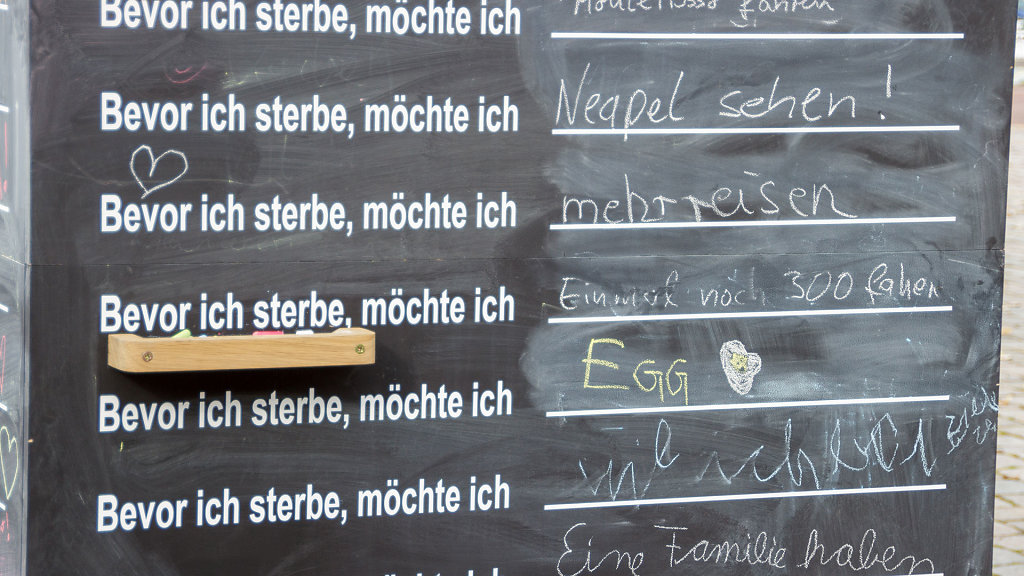 Bevor ich sterbe, möchte ich fahren
Bevor ich sterbe, möchte ich Neapel sehen!
Bevor ich sterbe, möchte ich mehr reisen
Bevor ich sterbe, möchte ich Einmal noch 300 fahren
Bevor ich sterbe, möchte ich EGG
Bevor ich sterbe, möchte ich
Eine Familie haben